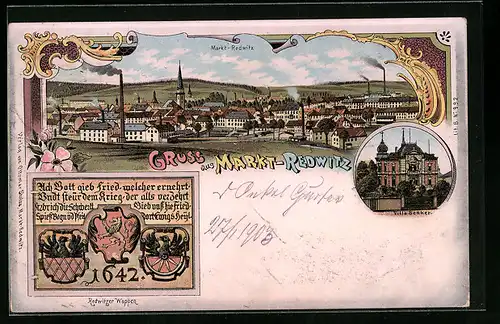 Markt-Redwitz
Gruss aus Markt-Redwitz
Villa Benker.
Ach Gott gieb Fried welcher ernehrt
Vndt steür dem Krieg der alls verZehrt
Zebrich die Schwertt
Gieb uns hie Fried
Spieß Bogn vd Pfeil
dort Ewigs Heyl
1642.
Redwitzer Wappen
d Onkel Gustav
27/1 1903